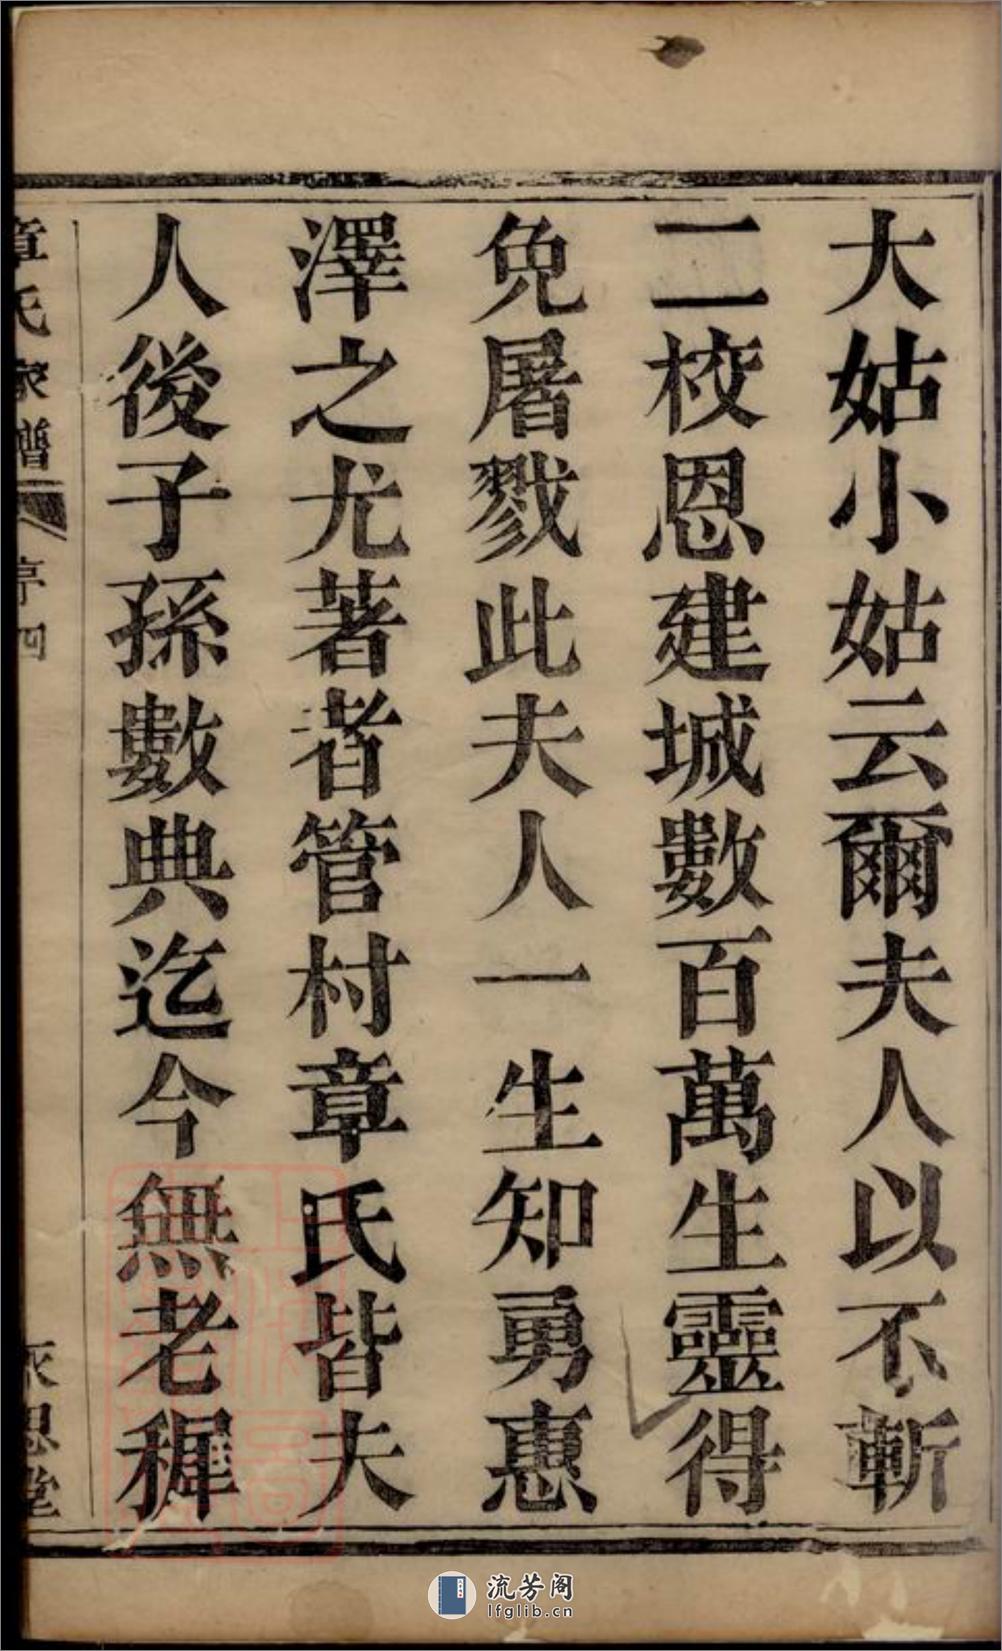 大姑小姑云爾夫人以不斬
二校恩建城數百萬生靈得
免屠戮此夫人一生知勇惠
澤之尤著者管村章氏皆夫
人後子孫數典迄今無老穉
章氏家譜 序 四
永思堂
流芳阁
lfglib.cn